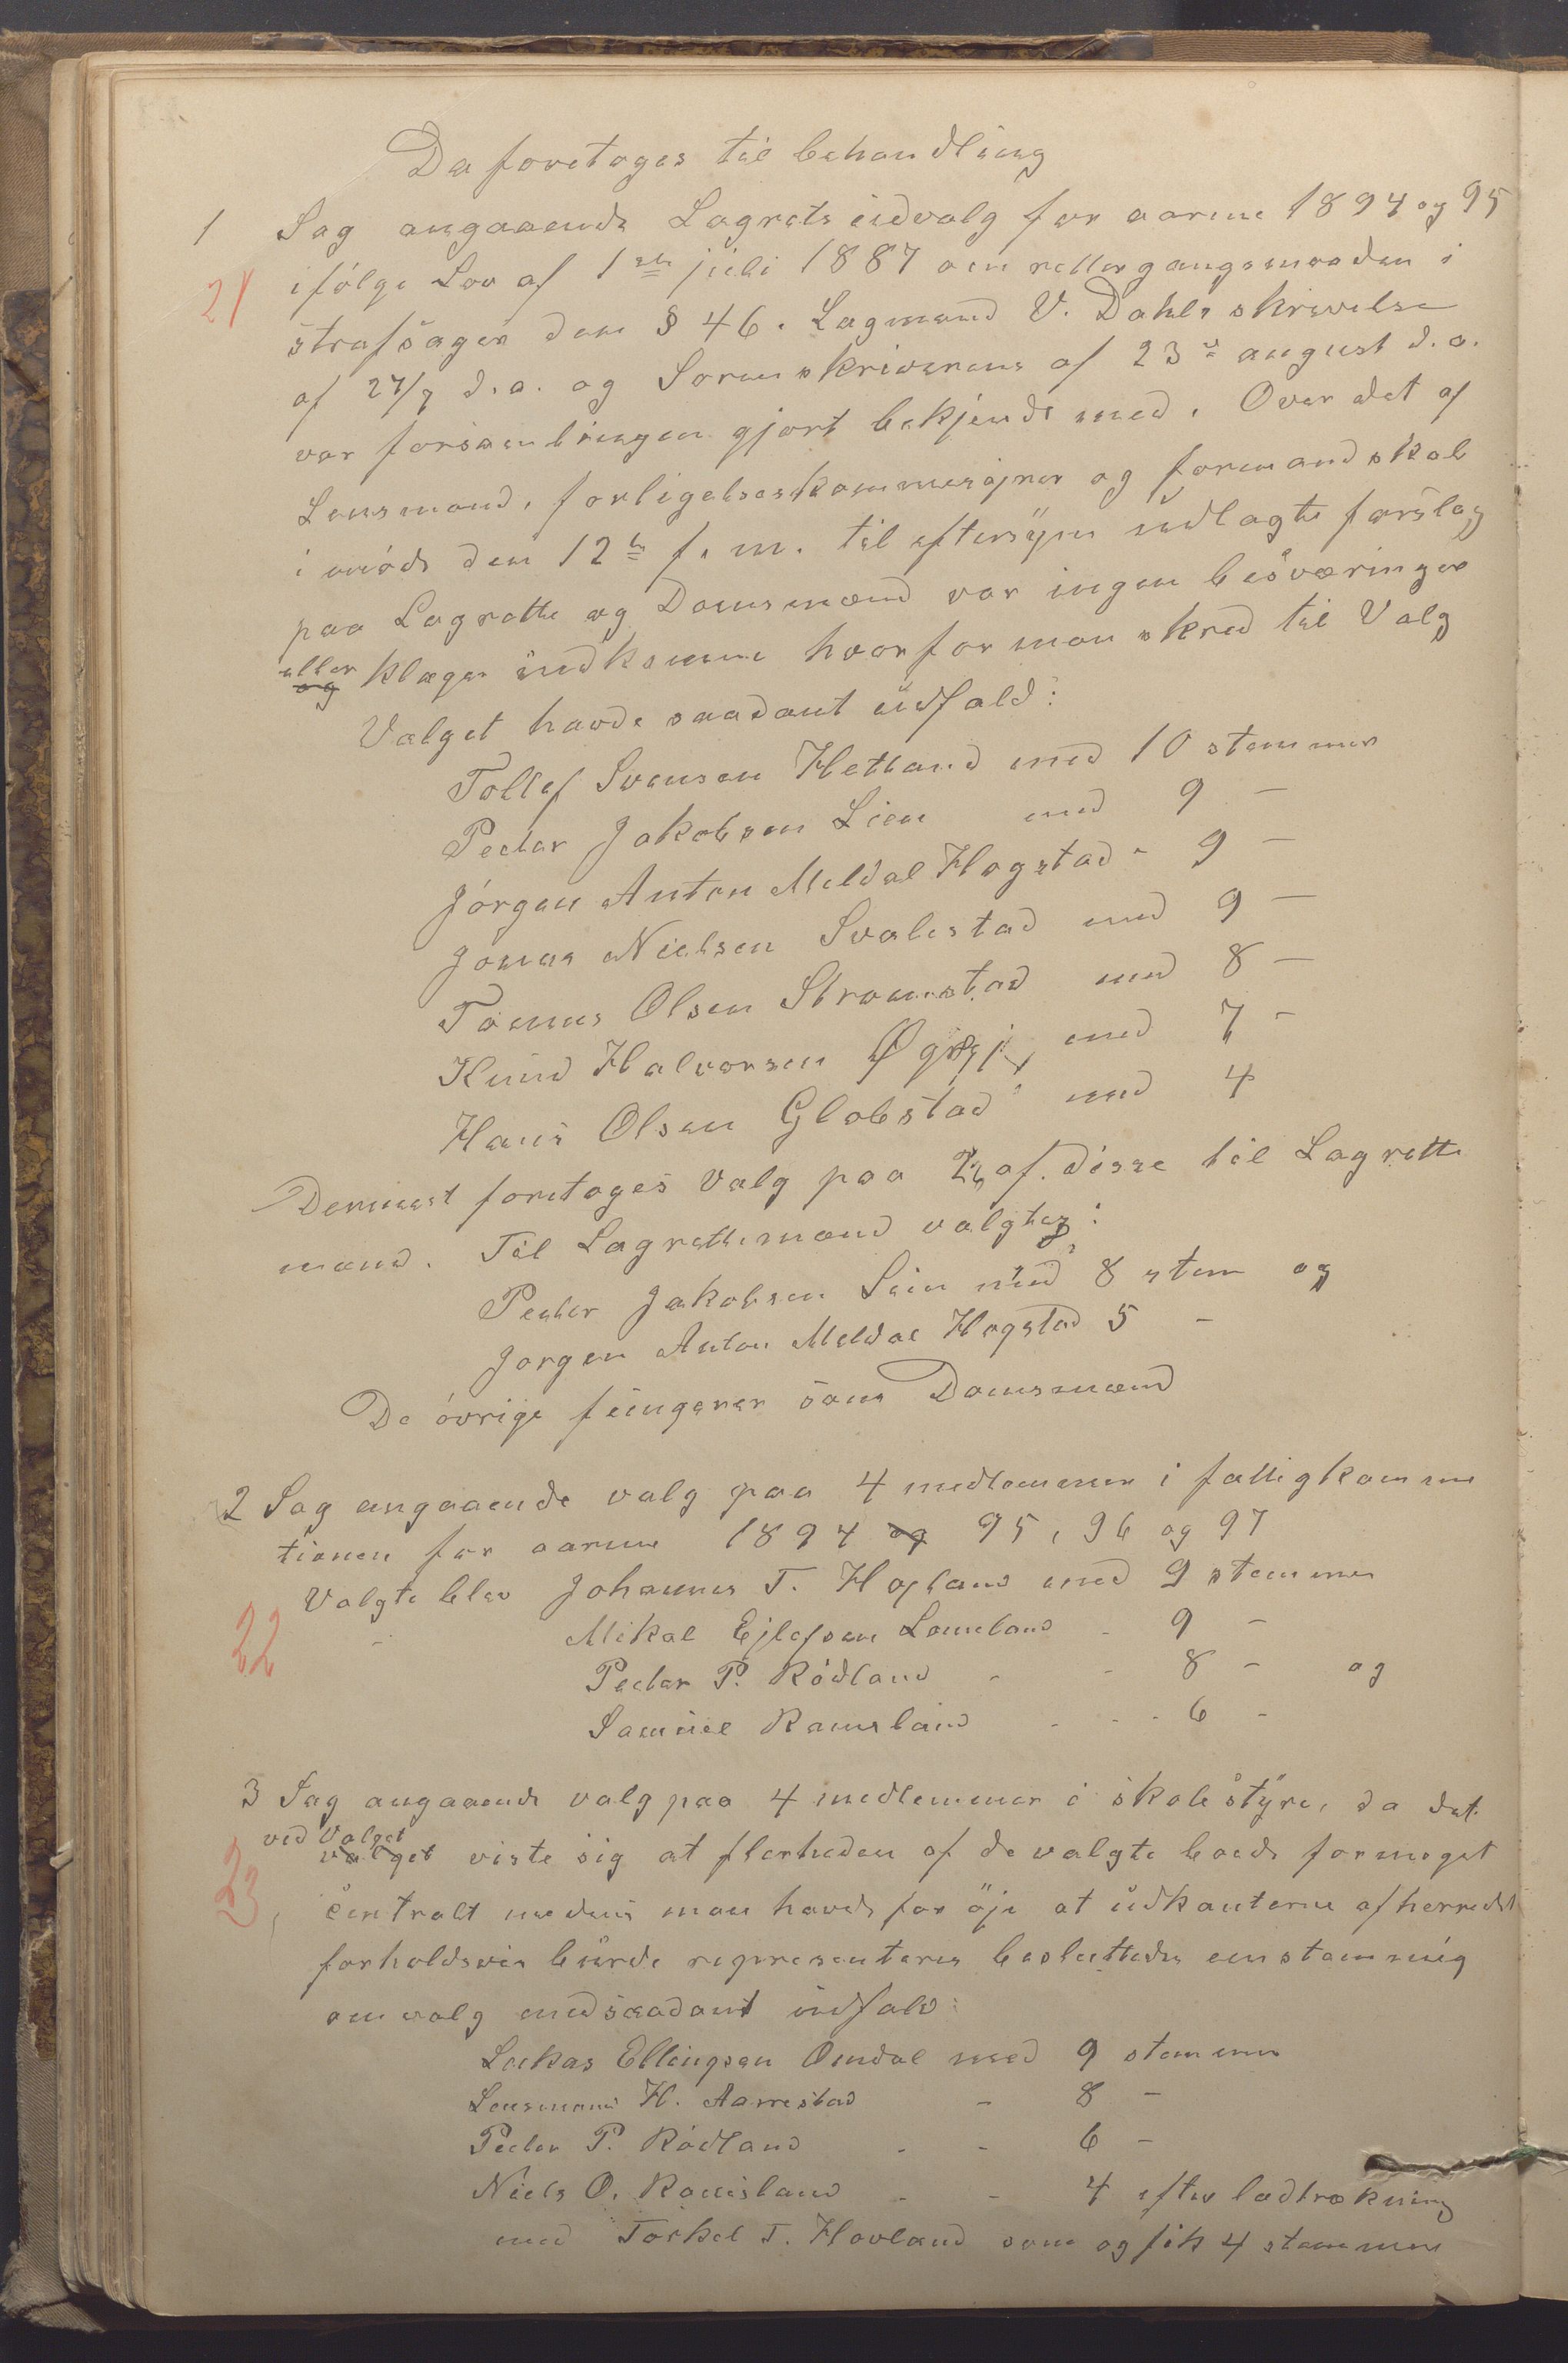 Da foretoges til behandling
1 Sag angaaende Lagretsudvalg for aarene 1894 og 95
21 ifölge Lov af 1ste juli 1887 om rettergangsmaaden i
strafsager dens § 46. Lagmand V. Dahls skrivelse
af 27/7 d.a. og Sorenskriverens af 23de august d.a.
var forsamlingen gjort bekjendt med. Over det af
Lensmand, forligelseskommissjoner og formandskab
i möde den 12te f.m. til eftersyn udlagte forslag
paa Lagrette og Domsmænd var ingen besværinger
eller og klager indkomne hvorfor man skred til Valg
Valget havde saadant udfald:
Tollef Svensen Hetland med 10 stemmer
Peder Jakobsen Lien med 9 -
Jörgen Anton Meldal Hogstad - 9 -
Jonas Nielsen Svalestad med 9 -
Tönnes Olsen Strømstad med 8 -
Knud Halvorsen med 7 -
Hans Olsen Globstad med 4
Dernæst foretoges Valg paa 2 af disse til Lagrette
mænd. Til Lagrettemænd valgtes:
Peder Jakobsen Lien med 8 stem og
Jorgen Anton Meldal Hogstad 5 -
De övrige fungerer som Domsmænd
2 Sag angaaende valg paa 4 medlemmer i fattigkommi
tionen for aarene 1894 og 95, 96 og 97
Valgte blev Johannes T. Hovland med 9 stemmer
22 - Mikal Ejlefsen Lomeland - 9 -
Peder P. Rödland - - 8 - og
Samuel Ramsland - - - 6 -
3 Sag angaaende valg paa 4 medlemmer i skolestyre, da det
ved Valget
valget viste sig at flerheden af de valgte boede formeget
23 centralt medens man havde for öje at udkanterne af herredet
forholdsvis burde representeres besluttedes enstemmig
omvalg med saadant udfald:
Lukas Ellingsen Omdal med 9 stemmer
Lensmand H. Aarrestad - 8 -
Peder P. Rödland - - 6 -
Niels O. Ramsland - - 4 efter lodtrækning
med Torkel T. Hovland som og fik 4 stemmer